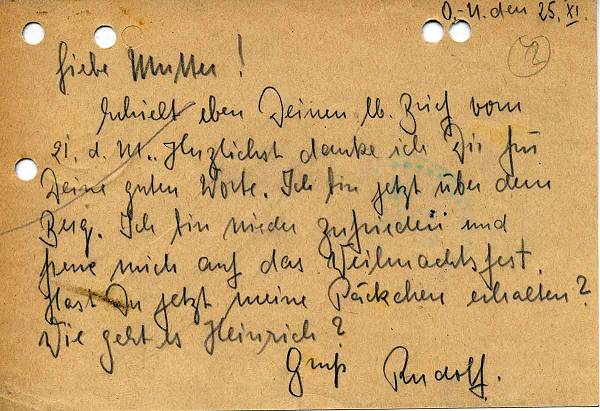 O.-U. den 25. XI.
2
Liebe Mutter!
Erhielt eben Deinen lb. Brief vom
21. d. M.. Herzlichst danke ich Dir für
Deine guten Worte. Ich bin jetzt über dem
Berg. Ich bin wieder zufrieden und
freue mich auf das Weihnachtsfest.
Hast Du jetzt meine Päckchen erhalten?
Wie geht es Heinrich?
Gruß Rudolf.